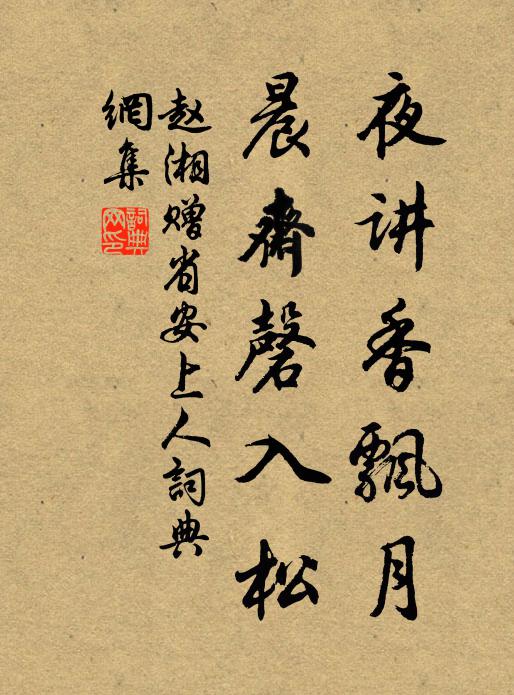 夜讲香飘月
晨齋磬入松
赵湘赠省安上人詞典
網集
詞典
网印